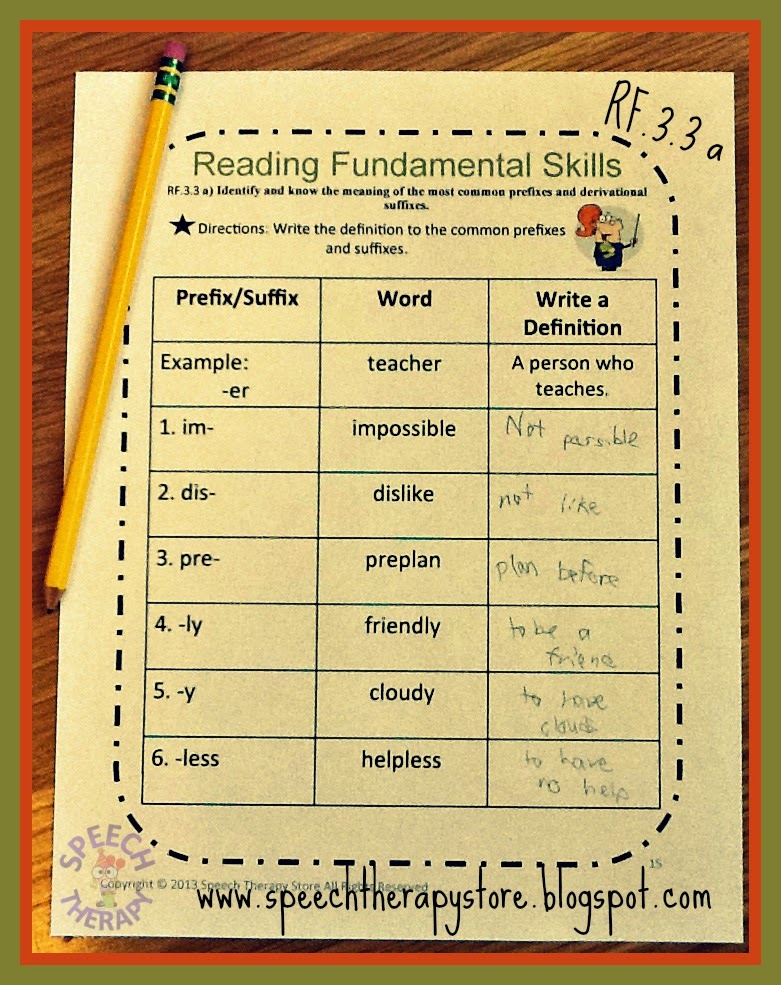 RF.3.3a
Reading Fundamental Skills
RF.3.3 a) Identify and know the meaning of the most common prefixes and derivational
suffixes.
Directions: Write the definition to the common prefixes
and suffixes.
Prefix/Suffix Word Write a
Definition
Example: teacher A person who
-er teaches.
1. im- impossible Not parsible
2. dis- dislike not like
3. pre- preplan plan before
4. -ly friendly to be a
friend
5. -y cloudy to have
clouds
6. -less helpless to have
no help
15
SPEECH
THERAPY
Copyright © 2013 Speech Therapy Store All Rights Reserved
www.speechtherapystore.blogspot.com